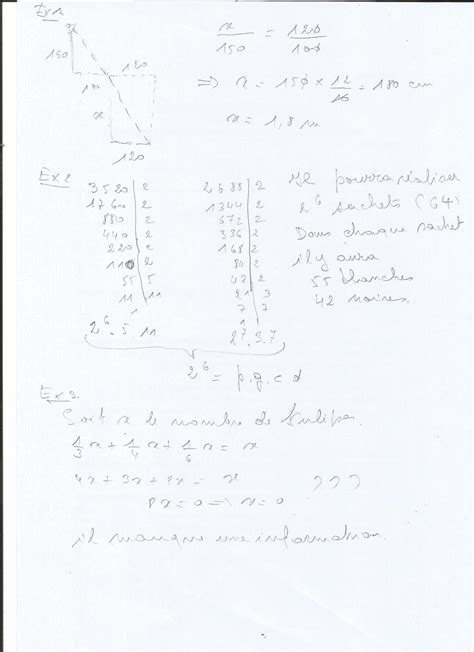 Ex 1.
150
120
100
x
120
x/150 = 120/100
=> x = 150 × 12/10 = 180 cm
x = 1,8 m
Ex 2
3520 | 2
1760 | 2
880 | 2
440 | 2
220 | 2
110 | 2
55 | 5
11 | 11
1
2^6 . 5 . 11
2688 | 2
1344 | 2
672 | 2
336 | 2
168 | 2
84 | 2
42 | 2
21 | 3
7 | 7
1
2^7 . 3 . 7
2^6 = p.g.c.d
Il pourra réaliser
2^6 sachets (64)
Dans chaque sachet
il y aura
55 blanches
42 noires.
Ex 3.
Soit x le nombre de tulipes
1/3 x + 1/4 x + 1/6 x = x
4x + 3x + 2x = x
8x = 0 => x = 0
???
il manque une information.